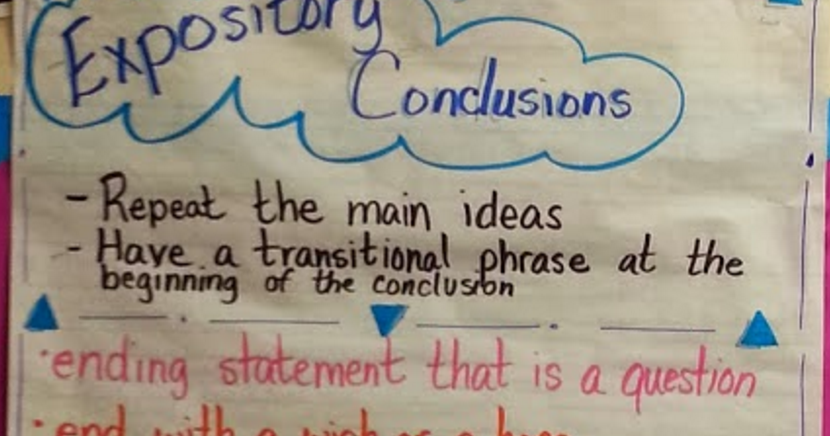 Expository
Conclusions
- Repeat the main ideas
- Have a transitional phrase at the
beginning of the conclusion
·ending statement that is a question
·end with a wish or a hope